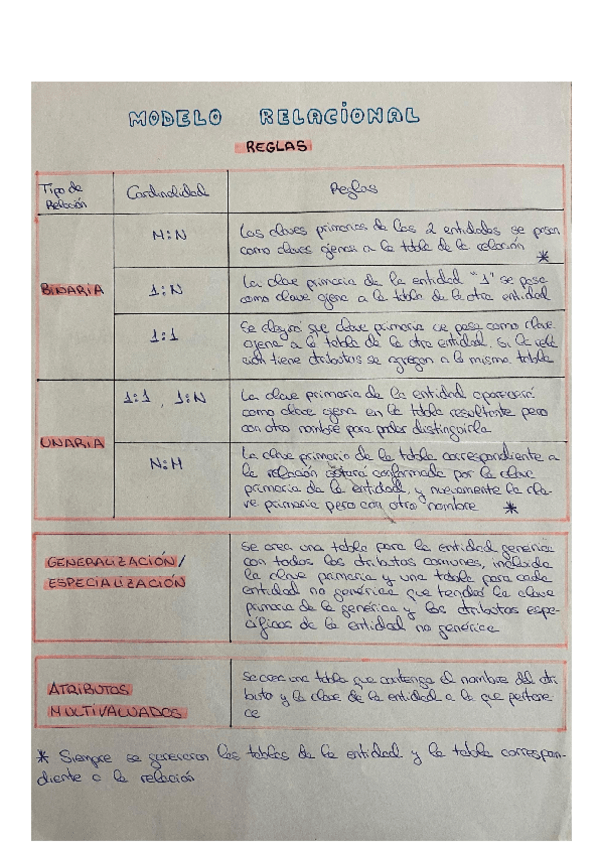 MODELO RELACIONAL
REGLAS
Tipo de Relación
Cardinalidad
Reglas
BINARIA
N:N
Las claves primarias de las 2 entidades se pasan
como claves ajenas a la tabla de la relación *
1:N
La clave primaria de la entidad "1" se pasa
como clave ajena a la tabla de la otra entidad
1:1
Se elegirá que clave primaria se pasa como clave
ajena a la tabla de la otra entidad. Si la rela
ción tiene atributos se agregan a la misma tabla
UNARIA
1:1, 1:N
La clave primaria de la entidad aparecerá
como clave ajena en la tabla resultante pero
con otro nombre para poder distinguirla
N:M
La clave primaria de la tabla correspondiente a
la relación estará conformada por la clave
primaria de la entidad, y nuevamente la cla-
ve primaria pero con otro nombre *
GENERALIZACIÓN/
ESPECIALIZACIÓN
Se crea una tabla para la entidad genérica
con todos los atributos comunes, incluida
la clave primaria y una tabla para cada
entidad no genérica que tendrá la clave
primaria de la genérica y los atributos espe-
cíficos de la entidad no genérica
ATRIBUTOS
MULTIVALUADOS
Se crea una tabla que contenga el nombre del atri
buto y la clave de la entidad a la que pertene
ce
* Siempre se generaran las tablas de la entidad y la tabla correspon-
diente a la relación